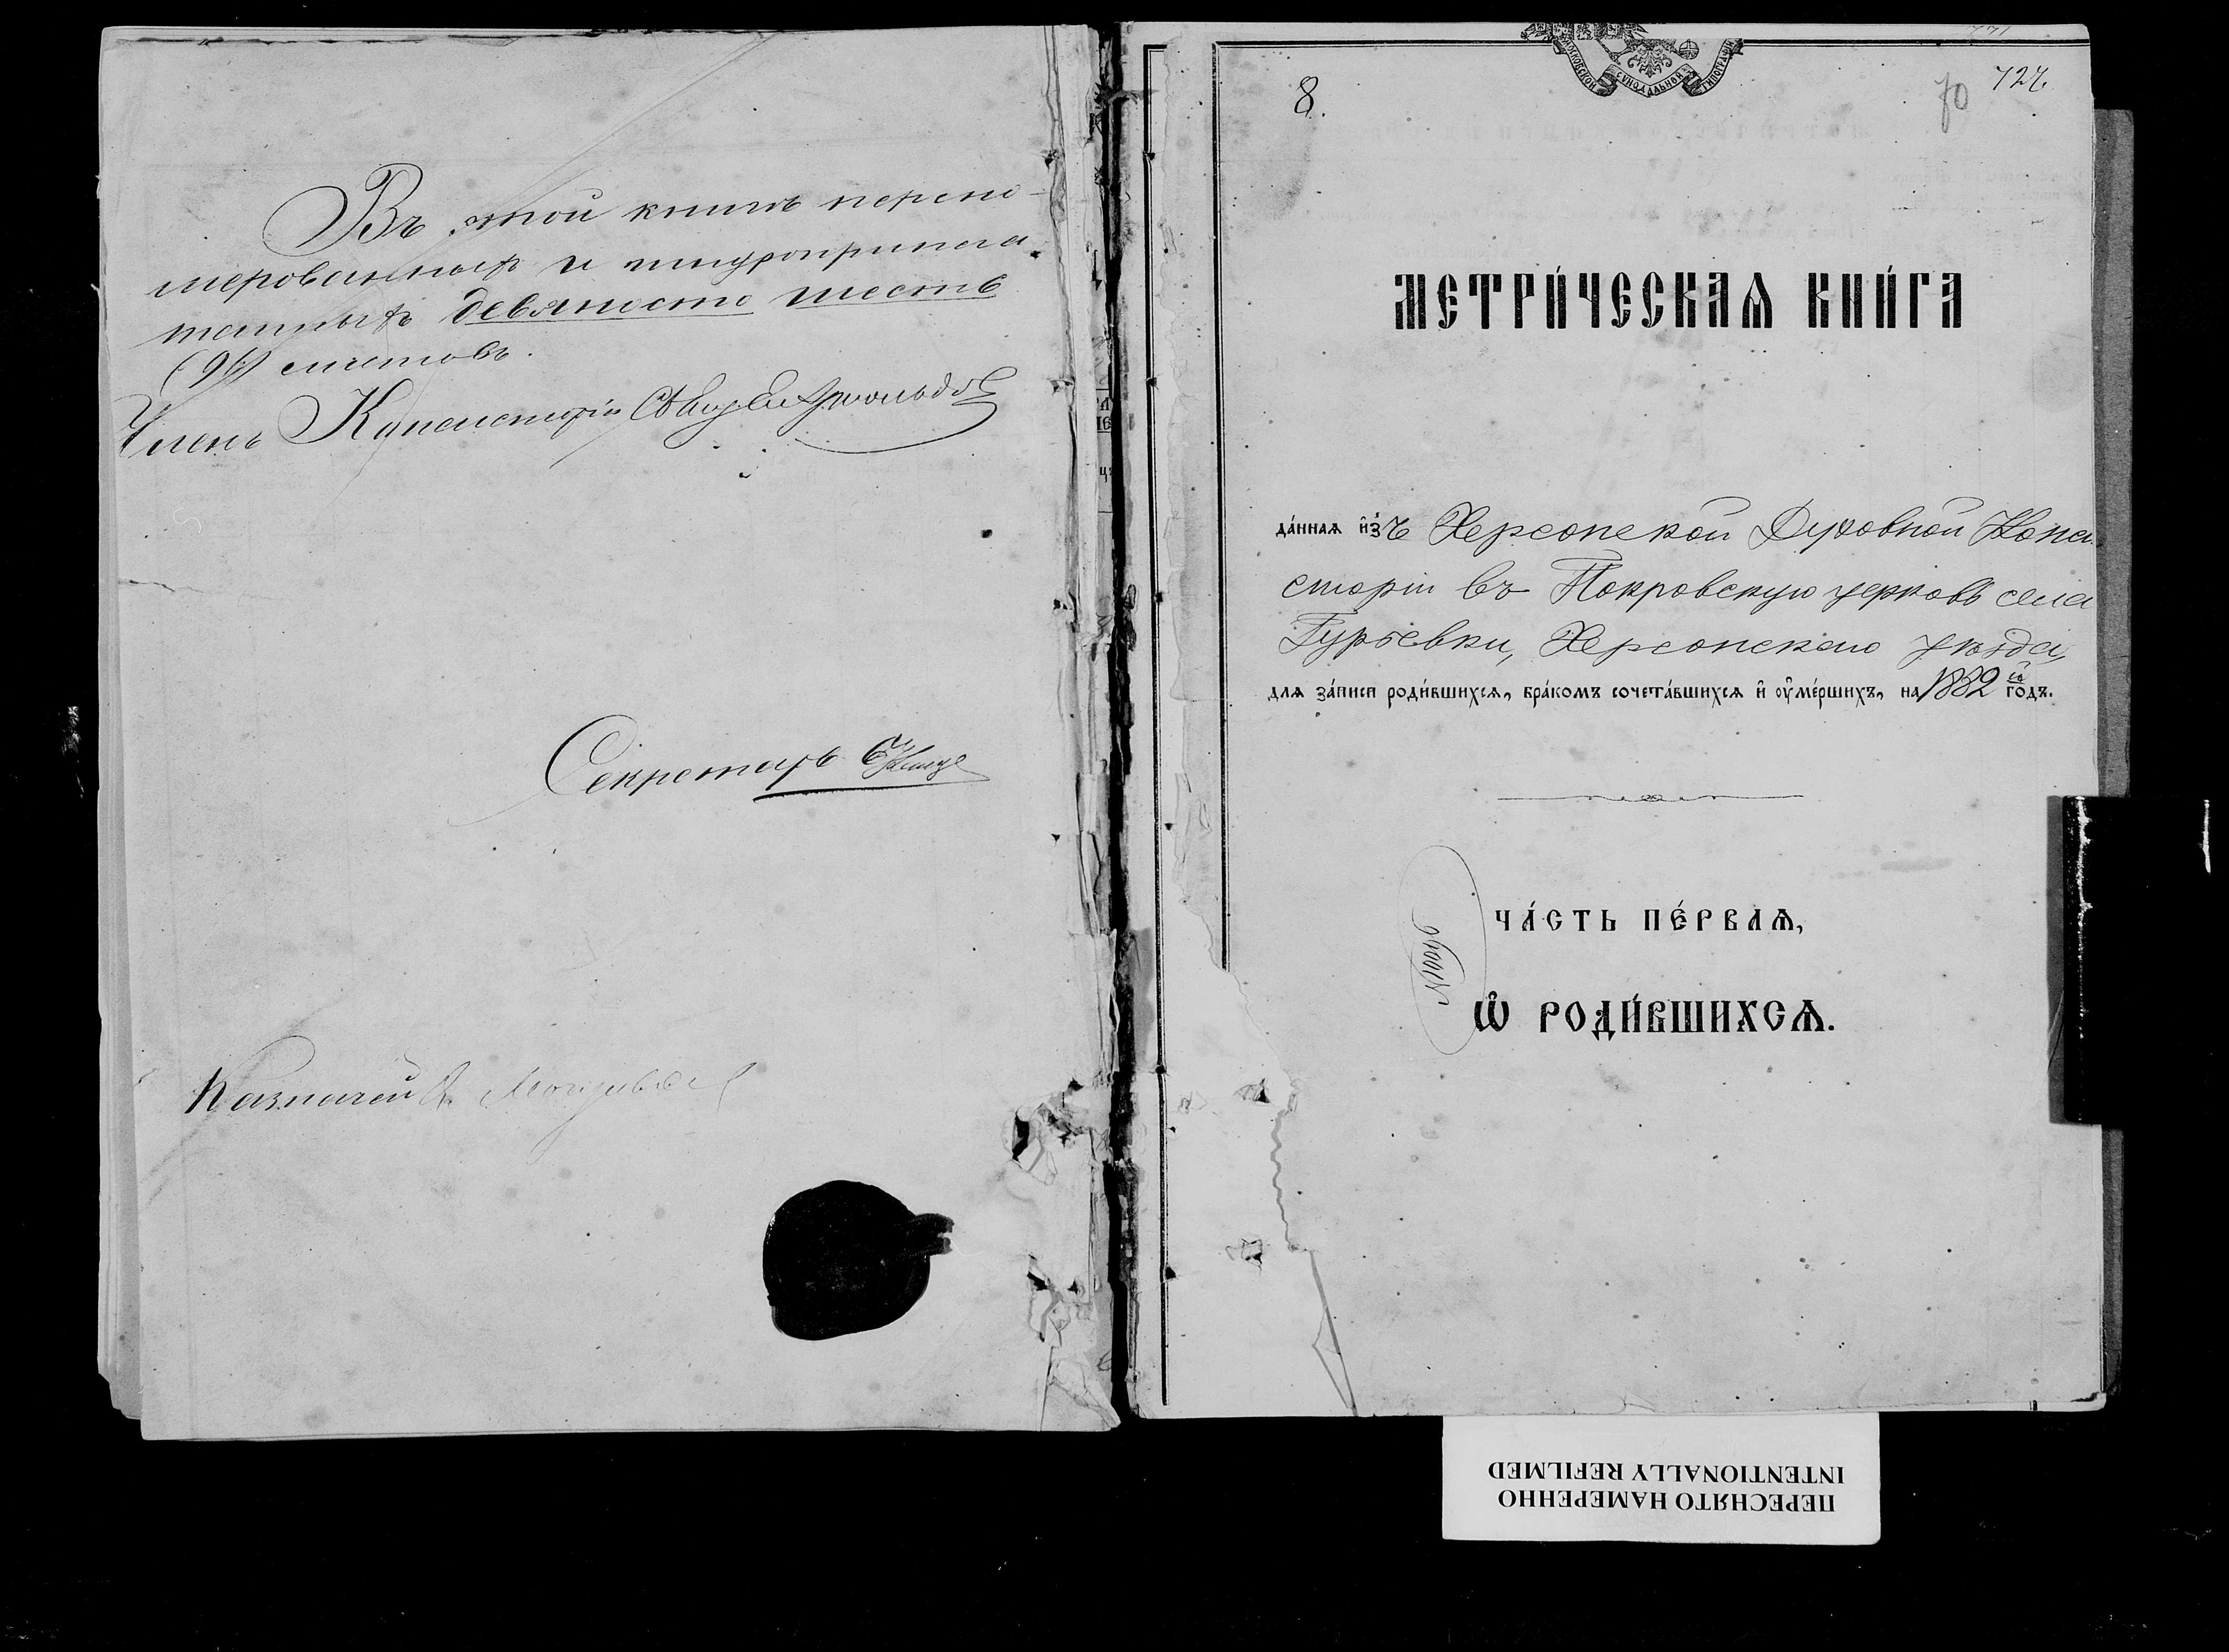 Въ этой книгѣ перено-
мерованныхъ и шнуроприпеча
танныхъ девяносто шесть
(96) листовъ.
Членъ Консисторіи
Секретарь
Казначей
МОСКОВСКОЙ СѴНОДАЛЬНОЙ ТИПОГРАФ
8.
70
727.
МЕТРИ́ЧЕСКАѦ КНИ́ГА
да́нная и҆́зъ Херсонской Духовной Конси
сторіи въ Покровскую церковь села
Гурьевки, Херсонскаго уѣзда,
для за́писи роди́вшихся, бра́комъ сочета́вшихся и҆ ᲂу҆ме́ршихъ, на 1882 й годъ.
ЧА́СТЬ ПЕ́РВАѦ,
Ѡ҆ РОДИ́ВШИХСѦ.
ПЕРЕСНЯТО НАМЕРЕННО
INTENTIONALLY REFILMED